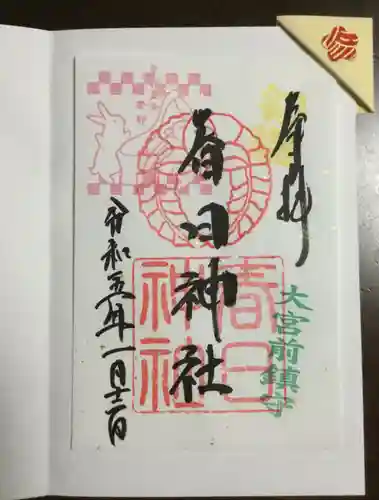 奉拝
大宮前鎮守
春日神社
春日
神社
令和五年一月十二日